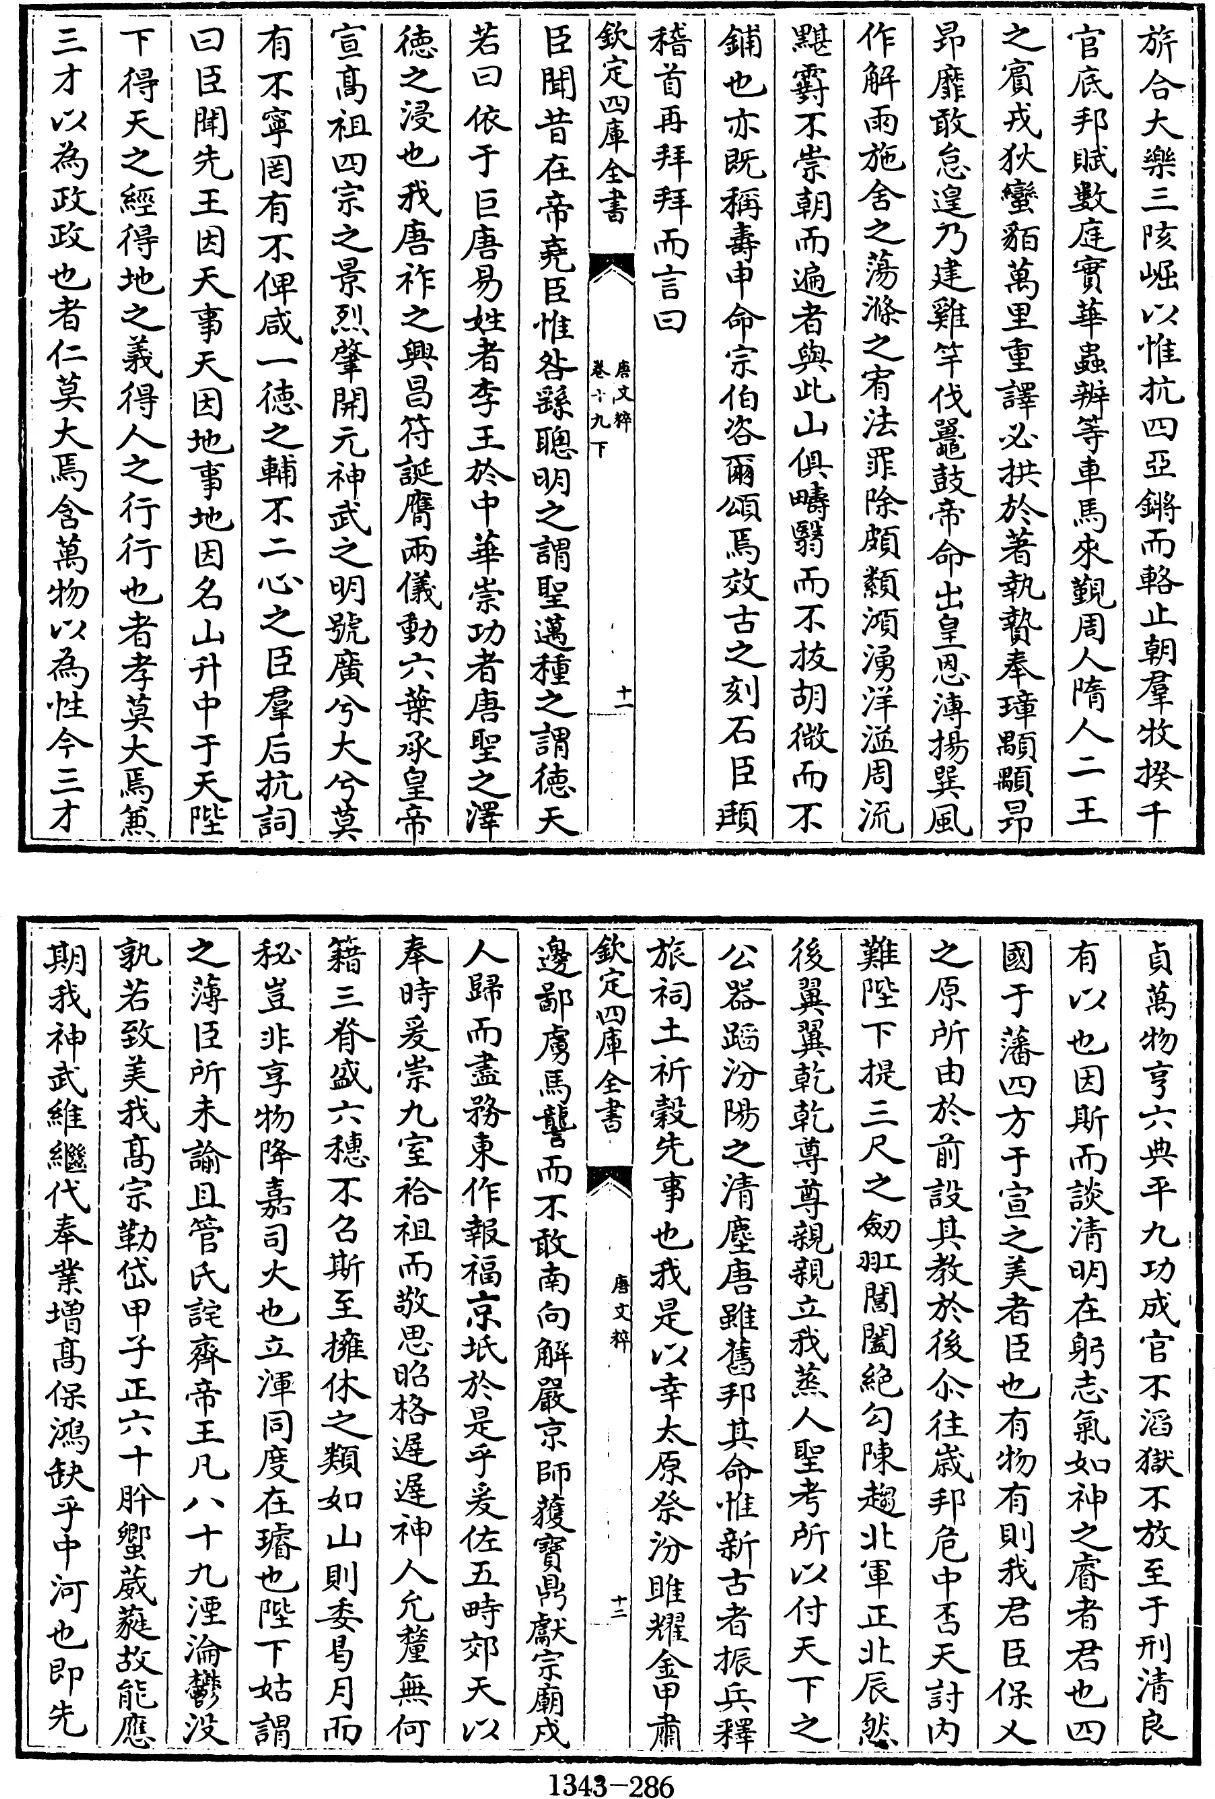 旂合大樂三陔崛以惟抗四亞鏘而輅止朝羣牧揆千
官底邦賦數庭實華蟲辨等車馬來覲周人隋人二王
之賔戎狄蠻貊萬里重譯必拱於著執贄奉璋顒顒昻
昂靡敢怠遑乃建雞竿伐鼉鼓帝命出皇恩溥揚巽風
作解雨施舍之蕩滌之宥法罪除頗纇澒湧洋溢周流
黮霨不崇朝而遍者與此山俱疇翳而不拔胡微而不
鋪也亦既稱壽申命宗伯咨爾頌焉效古之刻石臣頲
稽首再拜拜而言曰
欽定四庫全書
唐文粹
卷十九下
十一
臣聞昔在帝堯臣惟咎繇聰明之謂聖邁種之謂徳天
若曰依于巨唐易姓者李王於中華崇功者唐聖之澤
徳之浸也我唐祚之興昌符誕膺兩儀動六葉承皇帝
宣髙祖四宗之景烈肇開元神武之明號廣兮大兮莫
有不寧罔有不俾咸一徳之輔不二心之臣羣后抗詞
曰臣聞先王因天事天因地事地因名山升中于天陛
下得天之經得地之義得人之行行也者孝莫大焉兼
三才以為政政也者仁莫大焉含萬物以為性今三才
貞萬物亨六典平九功成官不滔獄不放至于刑清良
有以也因斯而談清明在躬志氣如神之睿者君也四
國于藩四方于宣之美者臣也有物有則我君臣保乂
之原所由於前設其教於後尒往歳邦危中否天討内
難陛下提三尺之劒羾閶闔絶勾陳趨北軍正北辰然
後翼翼乾乾尊尊親親立我蒸人聖考所以付天下之
公器蹈汾陽之清塵唐雖舊邦其命惟新古者振兵釋
旅祠土祈穀先事也我是以幸太原祭汾脽耀金甲肅
欽定四庫全書
唐文粹
十二
邊鄙虜馬讋而不敢南向解嚴京師獲寳鼎獻宗廟戍
人歸而盡務東作報福京坻於是乎爰佐五畤郊天以
奉時爰崇九室祫祖而敬思昭格遲遲神人允釐無何
籍三脊盛六穗不召斯至擁休之類如山則委曷月而
秘豈非享物降嘉司大也立渾同度在璿也陛下姑謂
之薄臣所未諭且管氏詫齊帝王凡八十九湮淪鬱没
孰若致美我髙宗勒岱甲子正六十肸蠁葳蕤故能應
期我神武維繼代奉業増髙保鴻缺乎中河也即先
1343-286